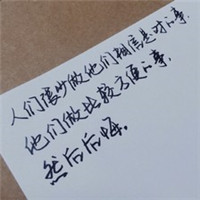 人们很少做他们相信是对的事.
他们做比较方便的事.
然后后悔.